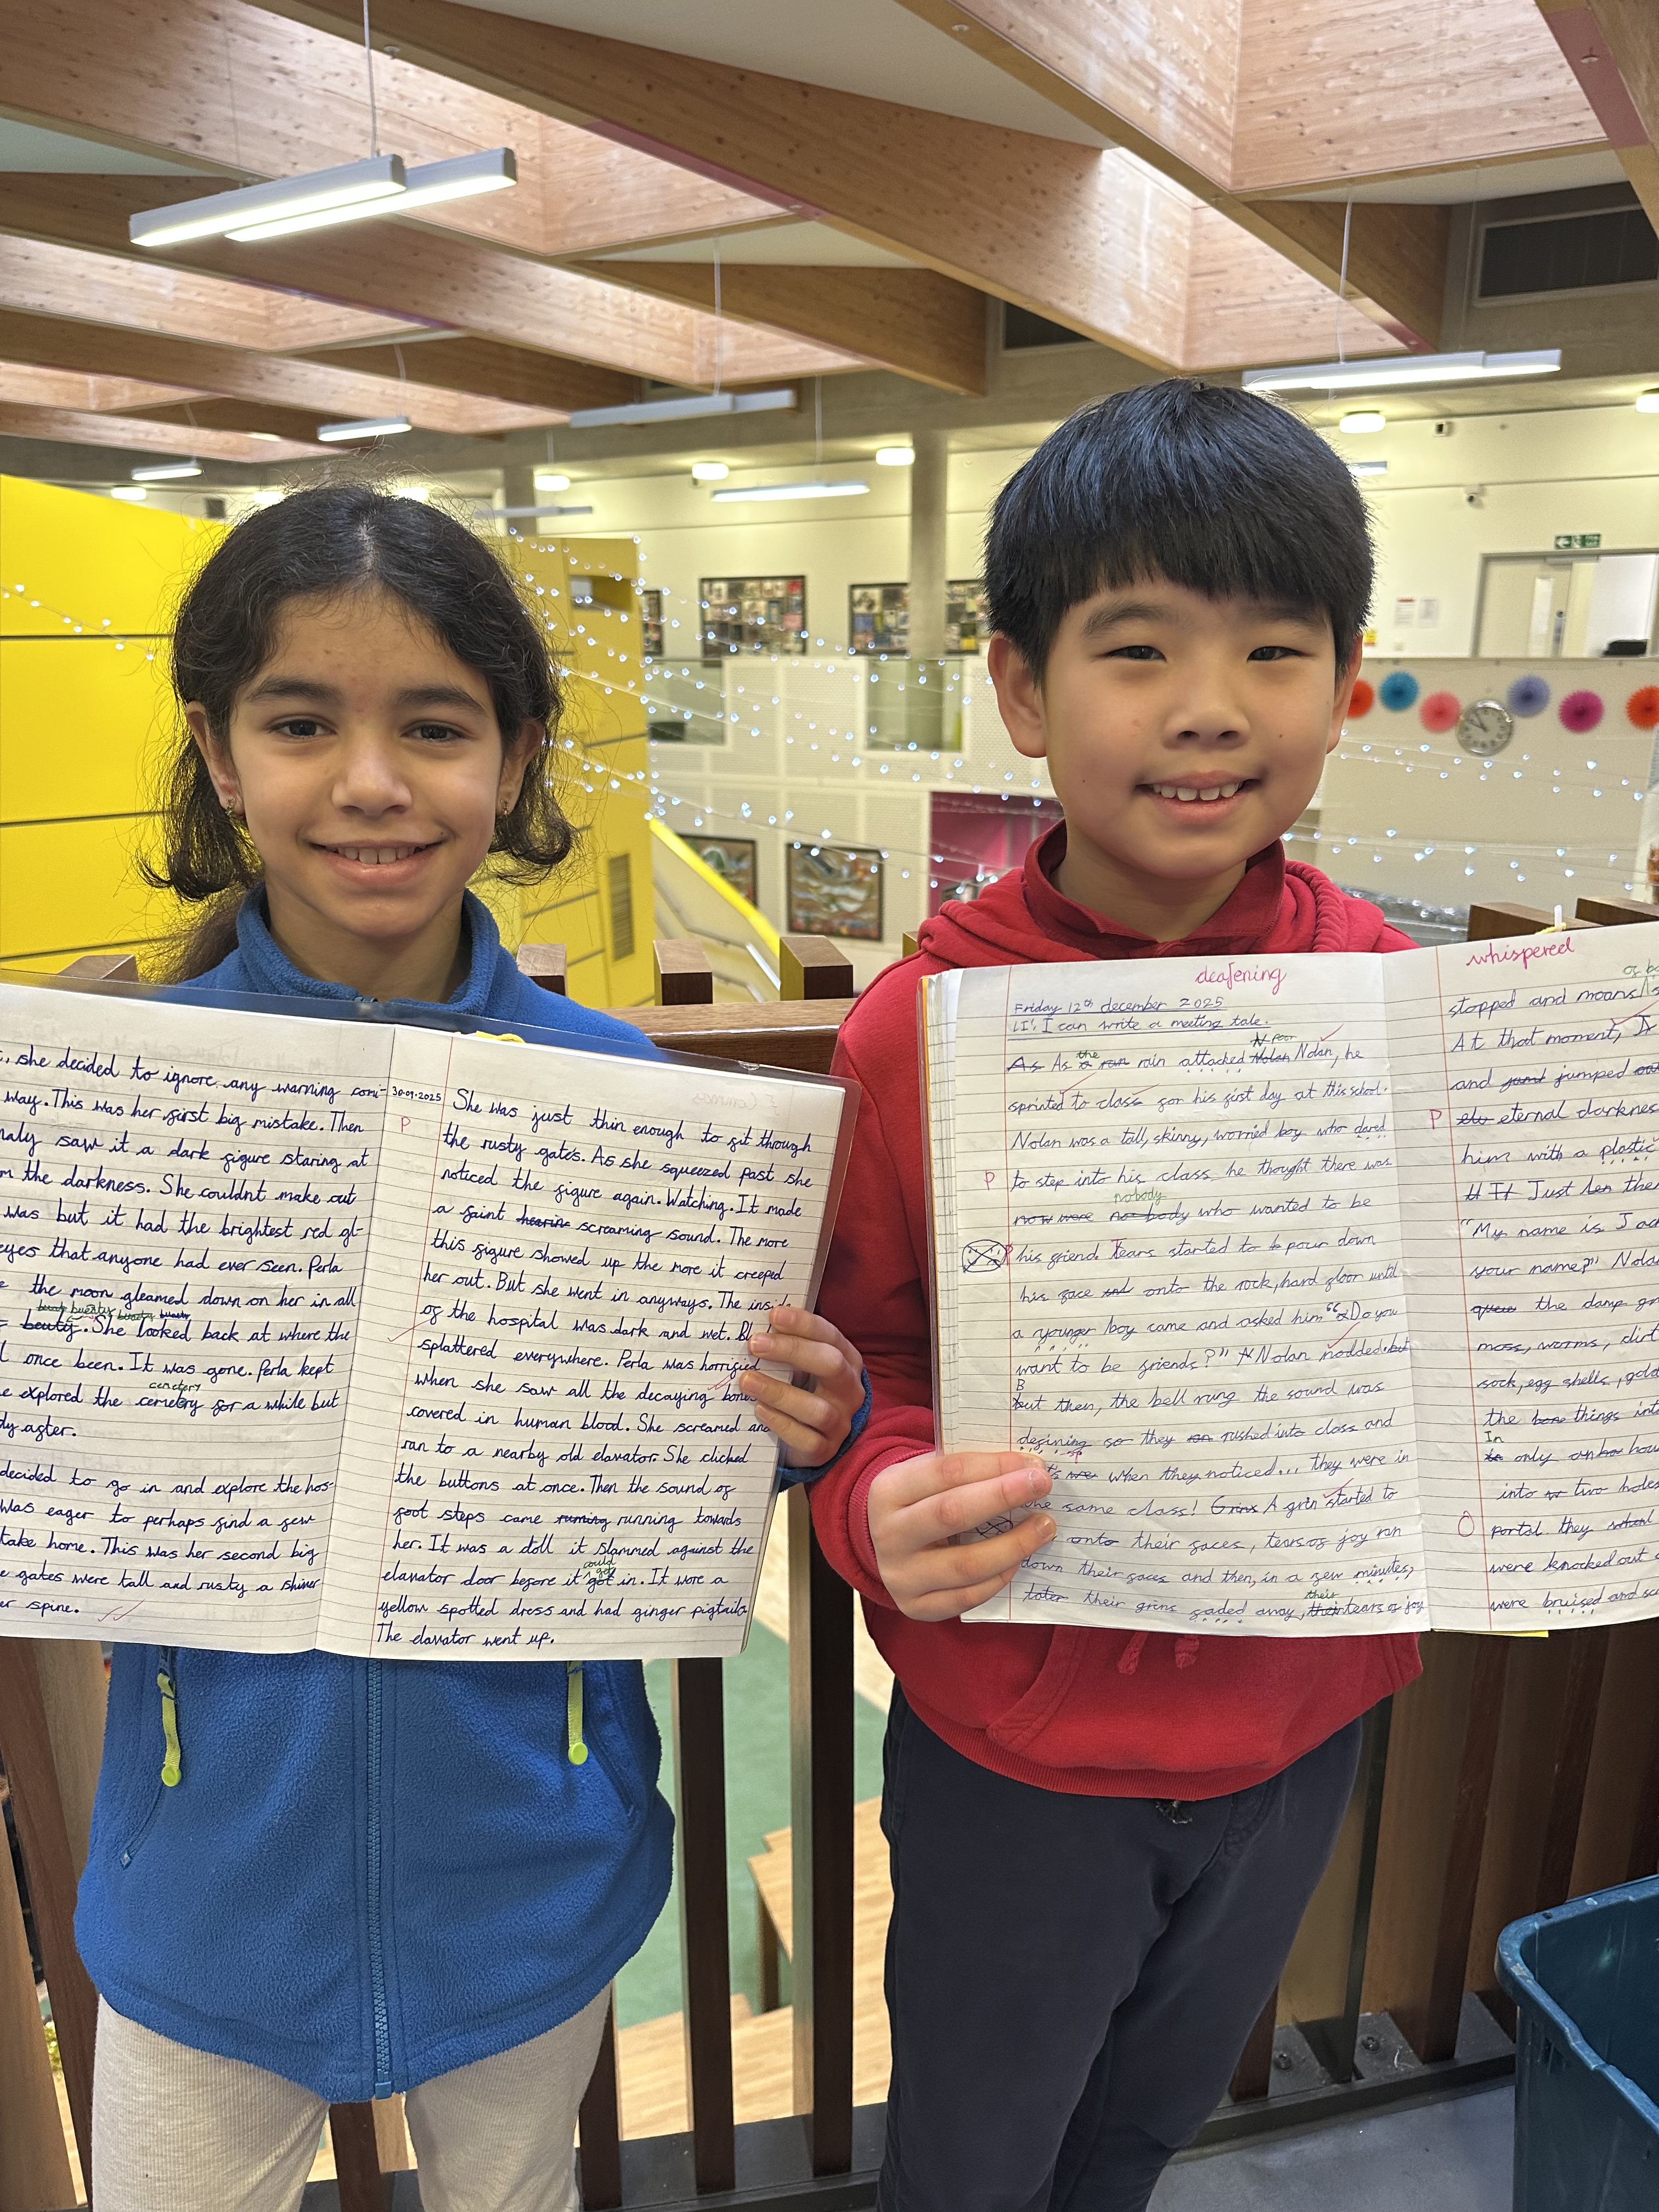 she decided to ignore any warning comi-
way. This was her first big mistake. Then
saw it a dark figure staring at
the darkness. She couldnt make out
was but it had the brightest red gl-
eyes that anyone had ever seen. Perla
the moon gleamed down on her in all
beuty. She looked back at where the
once been. It was gone. Perla kept
cemetery
explored the cemetry for a while but
after.
decided to go in and explore the hos-
was eager to perhaps find a few
take home. This was her second big
gates were tall and rusty a shiver
spine.
30.09.2025
P
She was just thin enough to fit through
the rusty gates. As she squeezed past she
noticed the figure again. Watching. It made
a faint screaming sound. The more
this figure showed up the more it creeped
her out. But she went in anyways. The
of the hospital was dark and wet.
splattered everywhere. Perla was horrified
when she saw all the decaying
covered in human blood. She screamed and
ran to a nearby old elavator. She clicked
the buttons at once. Then the sound of
foot steps came running towards
her. It was a doll it slammed against the
could
elavator door before it get in. It wore a
yellow spotted dress and had ginger pigtails.
The elavator went up.
deafening
Friday 12th december 2025
LI: I can write a meeting tale.
the
poor
As rain attacked Nolan, he
sprinted to class for his first day at this school.
Nolan was a tall, skinny, worried boy who dared
P
to step into his class, he thought there was
nobody
who wanted to be
his friend. Tears started to pour down
his face onto the rock, hard floor until
a younger boy came and asked him "Do you
want to be friends?" Nolan nodded but
B
but then, the bell rung the sound was
defining so they rushed into class and
When they noticed... they were in
same class! A grin started to
onto their faces, tears of joy ran
down their faces and then, in a few minutes,
their
later their grins faded away, tears of joy
whispered
stopped and moans
At that moment,
and jumped
P
eternal
him with a plastic
Just then
"My name is
your name?"
the damp
moss, worms, dirt
sock, egg shells,
the things
In
only
into two holes
portal they
were knocked out
were bruised and